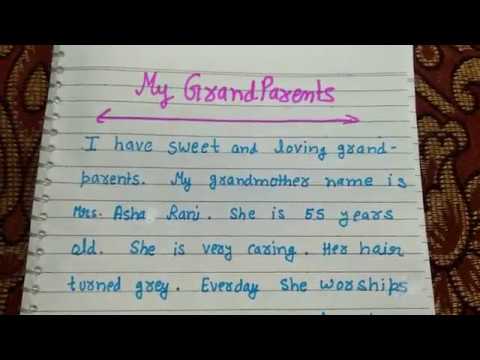 My GrandParents
I have sweet and loving grand-
parents. My grandmother name is
Mrs. Asha Rani. She is 55 years
old. She is very caring. Her hair
turned grey. Everday she worships